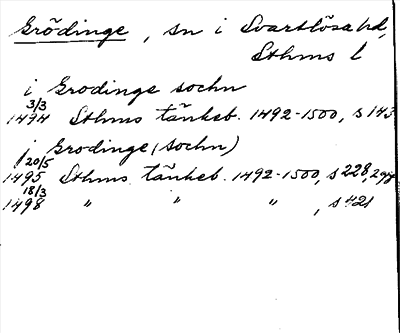 Grödinge, sn i Svartlösa hd,
Sthms l
i Grodinge sochn
3/3
1494 Sthms tänkeb. 1492-1500, s 143
j Grodinge (sochn)
20/5
1495 Sthms tänkeb. 1492-1500, s 228, 298
18/3
1498 " " " , s 421